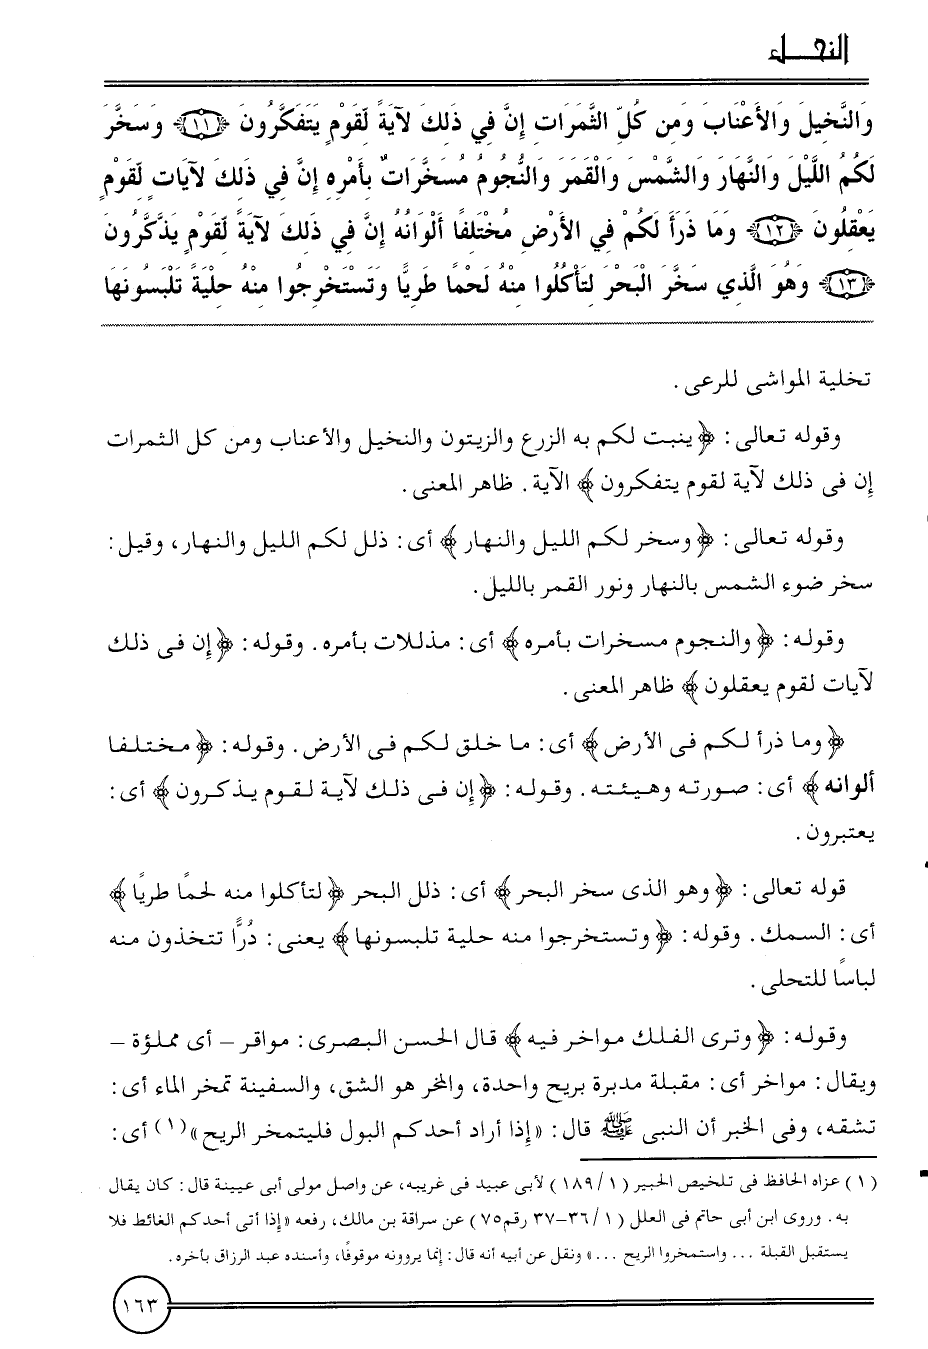 النحل
وَالنَّخِيلَ وَالأَعْنَابَ وَمِن كُلِّ الثَّمَرَاتِ إِنَّ فِي ذَلِكَ لآيَةً لِّقَوْمٍ يَتَفَكَّرُونَ ﴿١١﴾ وَسَخَّرَ
لَكُمُ اللَّيْلَ وَالنَّهَارَ وَالشَّمْسَ وَالْقَمَرَ وَالنُّجُومُ مُسَخَّرَاتٌ بِأَمْرِهِ إِنَّ فِي ذَلِكَ لآيَاتٍ لِّقَوْمٍ
يَعْقِلُونَ ﴿١٢﴾ وَمَا ذَرَأَ لَكُمْ فِي الأَرْضِ مُخْتَلِفًا أَلْوَانُهُ إِنَّ فِي ذَلِكَ لآيَةً لِّقَوْمٍ يَذَّكَّرُونَ
﴿١٣﴾ وَهُوَ الَّذِي سَخَّرَ الْبَحْرَ لِتَأْكُلُوا مِنْهُ لَحْمًا طَرِيًّا وَتَسْتَخْرِجُوا مِنْهُ حِلْيَةً تَلْبَسُونَهَا
تخلية المواشى للرعى .
وقوله تعالى : ﴿ ينبت لكم به الزرع والزيتون والنخيل والأعناب ومن كل الثمرات
إن فى ذلك لآية لقوم يتفكرون ﴾ الآية . ظاهر المعنى .
وقوله تعالى : ﴿ وسخر لكم الليل والنهار ﴾ أى : ذلل لكم الليل والنهار ، وقيل :
سخر ضوء الشمس بالنهار ونور القمر بالليل .
وقوله : ﴿ والنجوم مسخرات بأمره ﴾ أى : مذللات بأمره . وقوله : ﴿ إن فى ذلك
لآيات لقوم يعقلون ﴾ ظاهر المعنى .
﴿ وما ذرأ لكم فى الأرض ﴾ أى : ما خلق لكم فى الأرض . وقوله : ﴿ مختلفا
ألوانه ﴾ أى : صورته وهيئته . وقوله : ﴿ إن فى ذلك لآية لقوم يذكرون ﴾ أى :
يعتبرون .
قوله تعالى : ﴿ وهو الذى سخر البحر ﴾ أى : ذلل البحر ﴿ لتأكلوا منه لحمًا طريًا ﴾
أى : السمك . وقوله : ﴿ وتستخرجوا منه حلية تلبسونها ﴾ يعنى : دُرًّا تتخذون منه
لباسًا للتحلى .
وقوله : ﴿ وترى الفلك مواخر فيه ﴾ قال الحسن البصرى : مواقر – أى مملؤة –
ويقال : مواخر أى : مقبلة مدبرة بريح واحدة ، والمخر هو الشق ، والسفينة تمخر الماء أى :
تشقه ، وفى الخبر أن النبى ﷺ قال : « إذا أراد أحدكم البول فليتمخر الريح »(١) أى :
(١) عزاه الحافظ فى تلخيص الحبير (١/ ١٨٩) لأبى عبيد فى غريبه ، عن واصل مولى أبى عيينة قال : كان يقال
به . وروى ابن أبى حاتم فى العلل (١/ ٣٦-٣٧ رقم٧٥) عن سراقة بن مالك ، رفعه « إذا أتى أحدكم الغائط فلا
يستقبل القبلة ... واستمخروا الريح ... » ونقل عن أبيه أنه قال : إنما يروونه موقوفًا ، وأسنده عبد الرزاق بأخره .
١٦٣